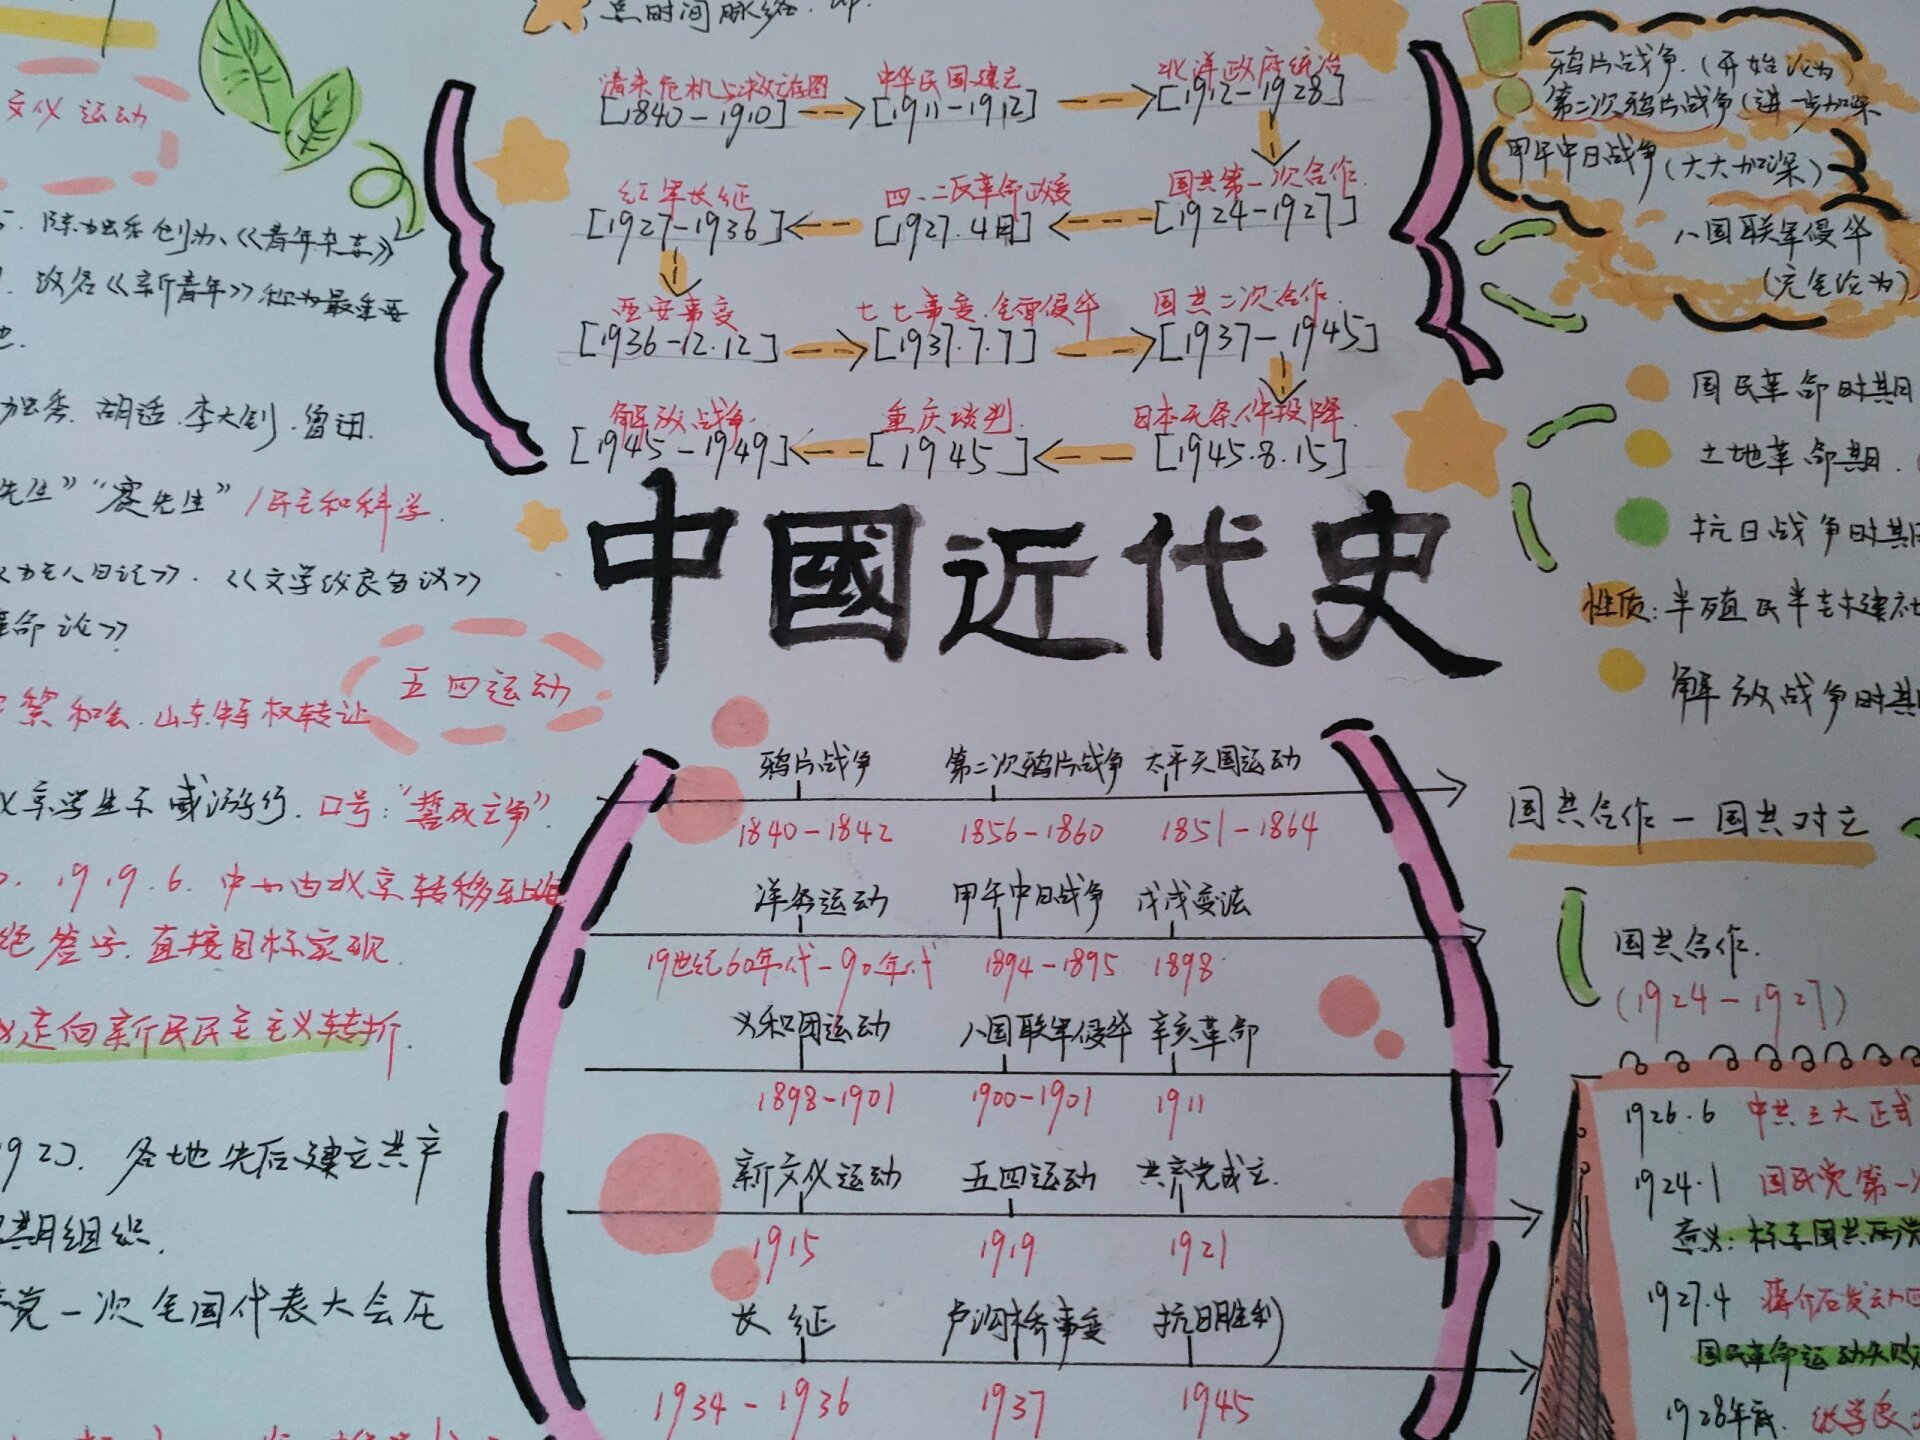 点时间脉络
清末危机与救亡图
中华民国建立
北洋政府统治
[1840-1910]
[1911-1912]
[1912-1928]
红军长征
四·二反革命政变
国共第一次合作
[1927-1936]
[1927.4月]
[1924-1927]
西安事变
七七事变.全面侵华
国共二次合作
[1936-12.12]
[1937.7.7]
[1937-1945]
解放战争
重庆谈判
日本无条件投降
[1945-1949]
[1945]
[1945.8.15]
中國近代史
鸦片战争
第二次鸦片战争
太平天国运动
1840-1842
1856-1860
1851-1864
洋务运动
甲午中日战争
戊戌变法
19世纪60年代-90年代
1894-1895
1898
义和团运动
八国联军侵华
辛亥革命
1898-1901
1900-1901
1911
新文化运动
五四运动
共产党成立.
1915
1919
1921
长征
卢沟桥事变
抗日胜利
1934-1936
1937
1945
文化运动
陈独秀创办《青年杂志》
改名《新青年》称为最重要
独秀.胡适.李大钊.鲁迅.
先生”“赛先生”/民主和科学.
人日记》.《文学改良刍议》
革命论》
五四运动
黎和会.山东特权转让
京学生示威游行.口号:“誓死力争”
19.6.中心由北京转移至上海
绝签字.直接目标实现
走向新民民主主义转折.
各地先后建立共产
期组织.
党一次全国代表大会在
鸦片战争.(开始沦为)
第二次鸦片战争(进一步加深
甲午中日战争(大大加深)
八国联军侵华
(完全沦为)
国民革命时期
土地革命期.
抗日战争时期
性质:半殖民半封建社
解放战争时期
国共合作-国共对立
国共合作.
(1924-1927)
1926.6 中共三大正式
1924.1 国民党第一次
意义:标志国共两党
1927.4 蒋介石发动四
国民革命运动失败
1928年底. 张学良